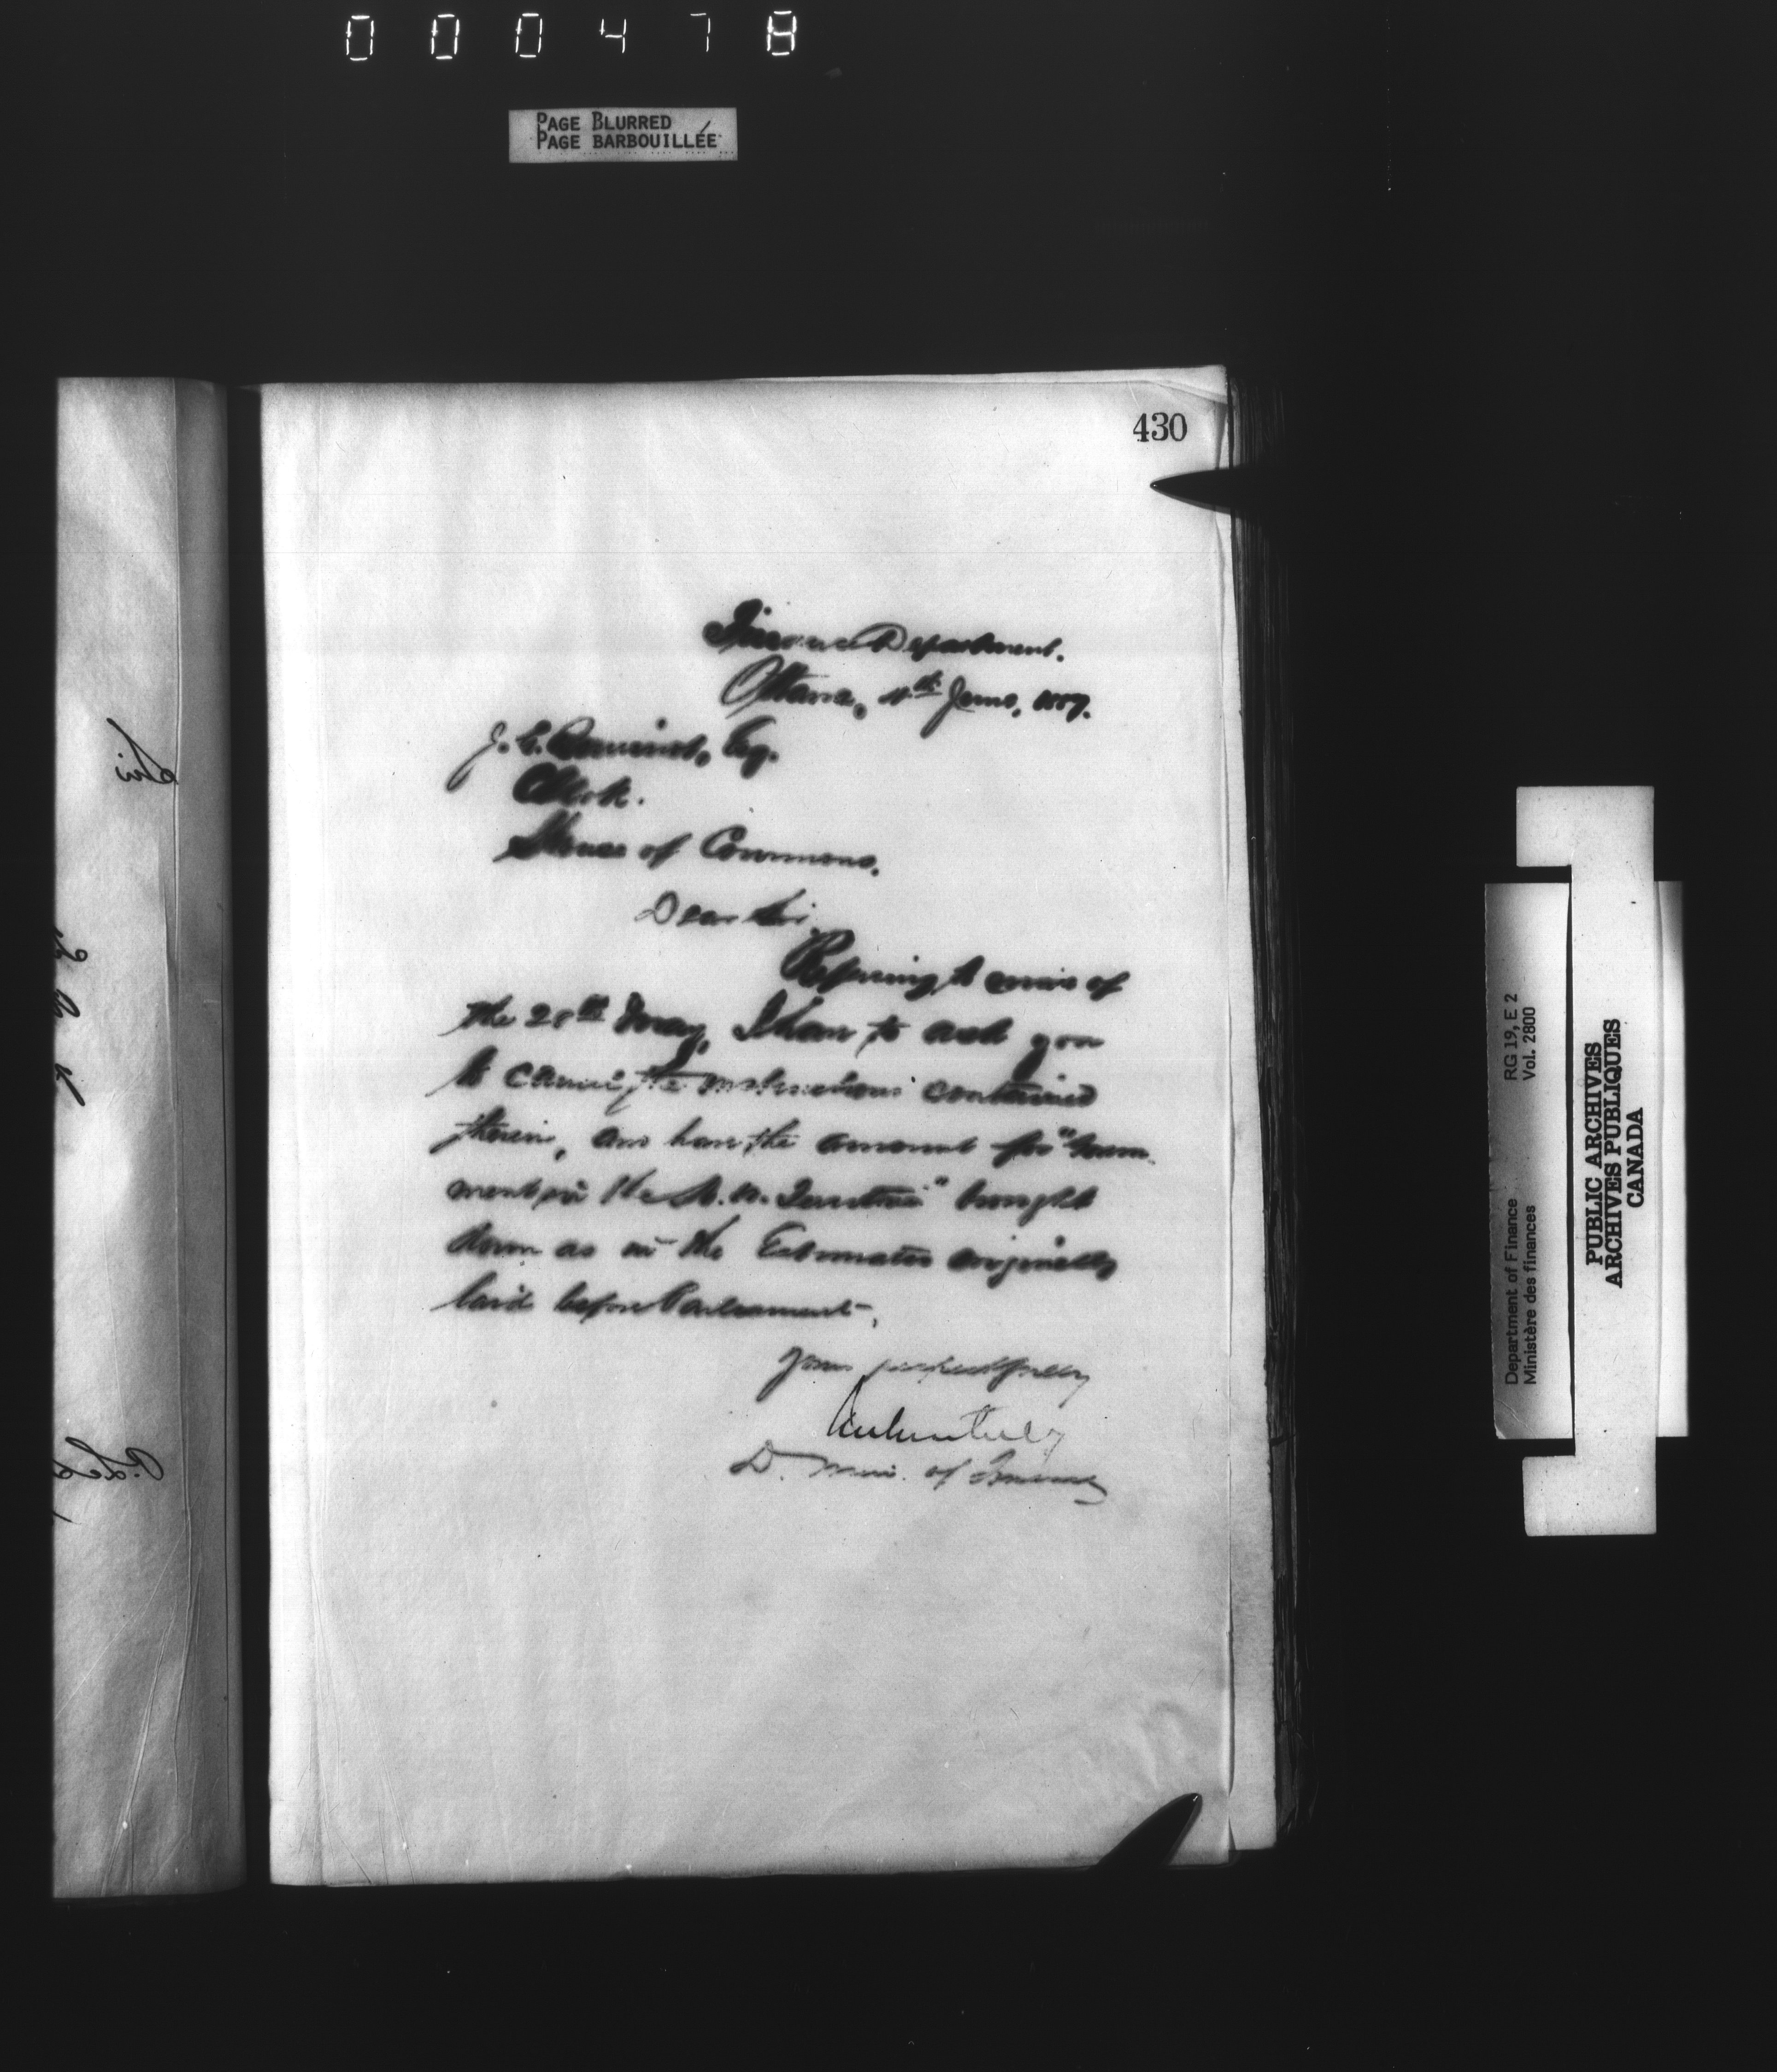 000478
PAGE BLURRED
PAGE BARBOUILLÉE
430
Finance Department.
Ottawa, 4th June, 1887.
J. G. Esq.
Clerk.
House of Commons.
Dear Sir,
Referring to mine of
the 28th May, I have to ask you
to cancel the instructions contained
therein, and have the amount for "Govern-
ment in the N.W. Territories" brought
down as in the Estimates originally
laid before Parliament.
Yours respectfully
D. Min. of Finance
Sir
RG 19, E 2
Vol. 2800
Department of Finance
Ministère des finances
PUBLIC ARCHIVES
ARCHIVES PUBLIQUES
CANADA